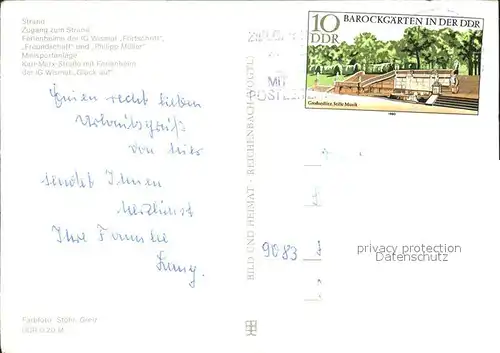 Strand
Zugang zum Strand
Ferienheime der IG Wismut „Fortschritt",
„Freundschaft" und „Philipp Müller"
Minisportanlage
Karl-Marx-Straße mit Ferienheim
der IG Wismut „Glück auf"
Einen recht lieben
Urlaubsgruß
von hier
sendet Ihnen
herzlichst
Ihre Familie
Farbfoto: Stöhr,
BILD UND HEIMAT · REICHENBACH (VOGTL)
MIT
POSTLEIT
10
DDR
BAROCKGÄRTEN IN DER DDR
Großsedlitz, Stille Musik
1980
9083
privacy protection
Datenschutz